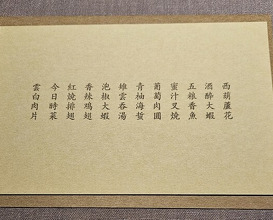 西葫蘆花
酒醉大蝦
五糧香魚
蜜汁叉燒
葡萄肉圓
青柚海蜇
雄雲吞湯
泡椒大蝦
香辣鳮翅
紅燒排翅
今日時菜
雲白肉片